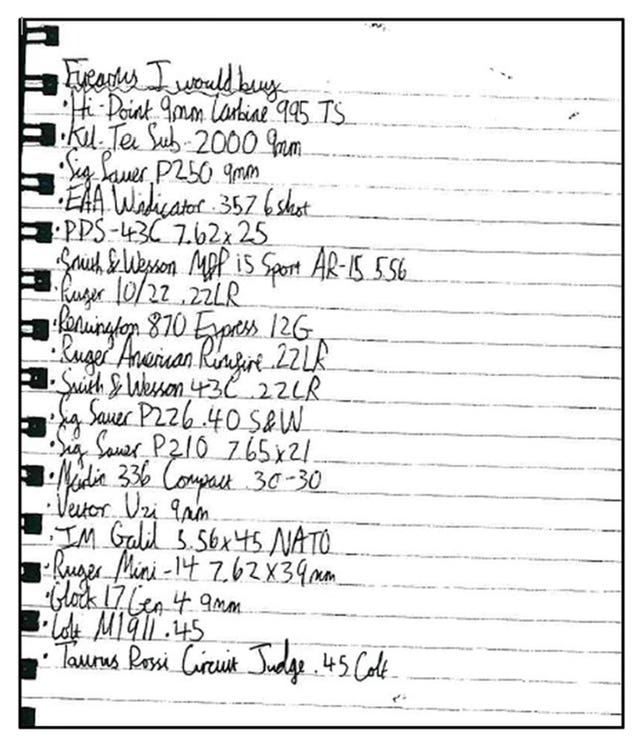 Firearms I would buy
• Hi-Point 9mm Carbine 995 TS
• Kel-Tec Sub-2000 9mm
• Sig Sauer P250 9mm
• EAA Windicator .357 6 shot
• PPS-43C 7.62x25
• Smith & Wesson M&P 15 Sport AR-15 5.56
• Ruger 10/22 .22LR
• Remington 870 Express 12G
• Ruger American Rimfire .22LR
• Smith & Wesson 43C .22LR
• Sig Sauer P226 .40 S&W
• Sig Sauer P210 7.65x21
• Marlin 336 Compact .30-30
• Vector Uzi 9mm
• IM Galil 5.56x45 NATO
• Ruger Mini-14 7.62x39mm
• Glock 17 Gen 4 9mm
• Colt M1911 .45
• Taurus Rossi Circuit Judge .45 Colt